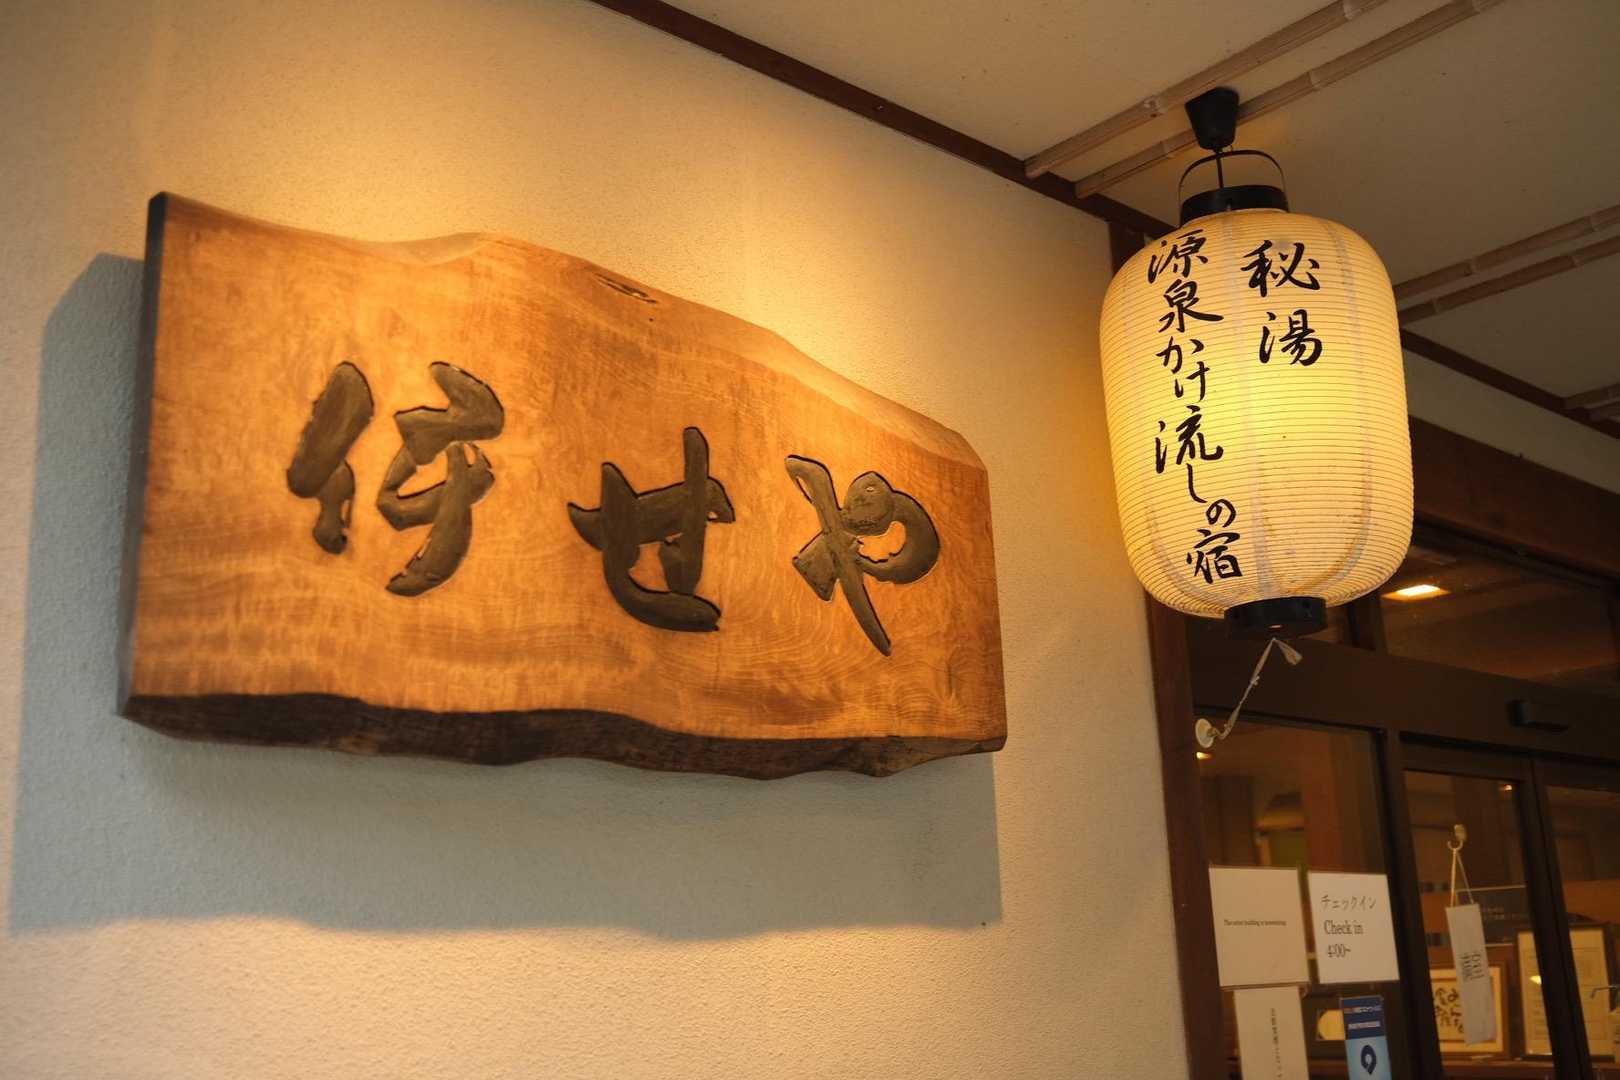 伊せや
秘湯
源泉かけ流しの宿
The entire building is nonsmoking
チェックイン
Check in
4:00~